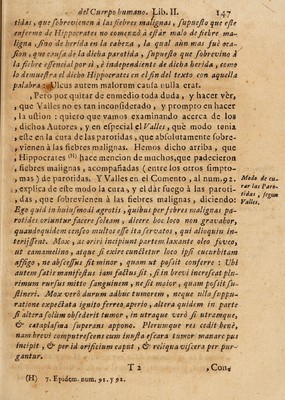 del Cuerpo humano. Lib. II. 147
tidas, que sobrevienen à las fiebres malignas, supuesto que este
enfermo de Hippocrates no comenzò à estàr malo de fiebre ma-
ligna, sino de herida en la cabeza, la qual aun mas fue oca-
sion, que causa de la dicha parotida, supuesto que sobrevino à
la fiebre essencial por sì, è independente de dicha herida, como
lo demuestra el dicho Hippocrates en el fin del texto con aquella
palabra: Ulcus autem malorum causa nulla erat.
Pero por quitar de enmedio toda duda, y hacer vèr,
que Valles no es tan inconsiderado, y prompto en hacer
la ustion: quiero que vamos examinando acerca de los
dichos Autores, y en especial el Valles, què modo tenia
este en la cura de las parotidas, que absolutamente sobre-
vienen à las fiebres malignas. Hemos dicho arriba, que
Hippocrates (H) hace mencion de muchos, que padecieron
fiebres malignas, acompañadas (entre los otros simpto-
mas) de parotidas. Y Valles en el Comento, al num. 92.
explica de este modo la cura, y el dàr fuego à las paroti-
das, que sobrevienen à las fiebres malignas, diciendo:
Ego quid in huiusmodi agrotis, quibus per febres malignas pa-
rotides oriuntur facere soleam, dicere hoc loco non gravabor,
quandoquidem censeo multos esse ita servatos, qui alioquin in-
terijssent. Mox, ac oriri incipiunt partem laxante oleo foveo,
ut camamelino, atque si exire cunctetur loco ipsi cucurbitam
affigo, ne abscessus sit minor, quam ut possit conferre: Ubi
autem satis manifestus iam factus sit, si in brevi increscat plu-
rimum rursus mitto sanguinem, ne sit maior, quam possit su-
stineri. Mox verò durum adhuc tumorem, neque ulla suppu-
ratione expectata ignito ferro aperio, altera quidem in parte
si altera solùm obsederit tumor, in utraque verò si utramque,
& cataplasma superans appono. Plerumque res cedit benè,
nam brevi computrescens cum iusta escara tumor manare pus
incipit, & per id orificium caput, & reliqua viscera per pur-
gantur.
Modo de cu-
rar las Paro-
tidas, segun
Valles.
T 2 Con-
(H) 7. Epidem. num. 91. y 92.